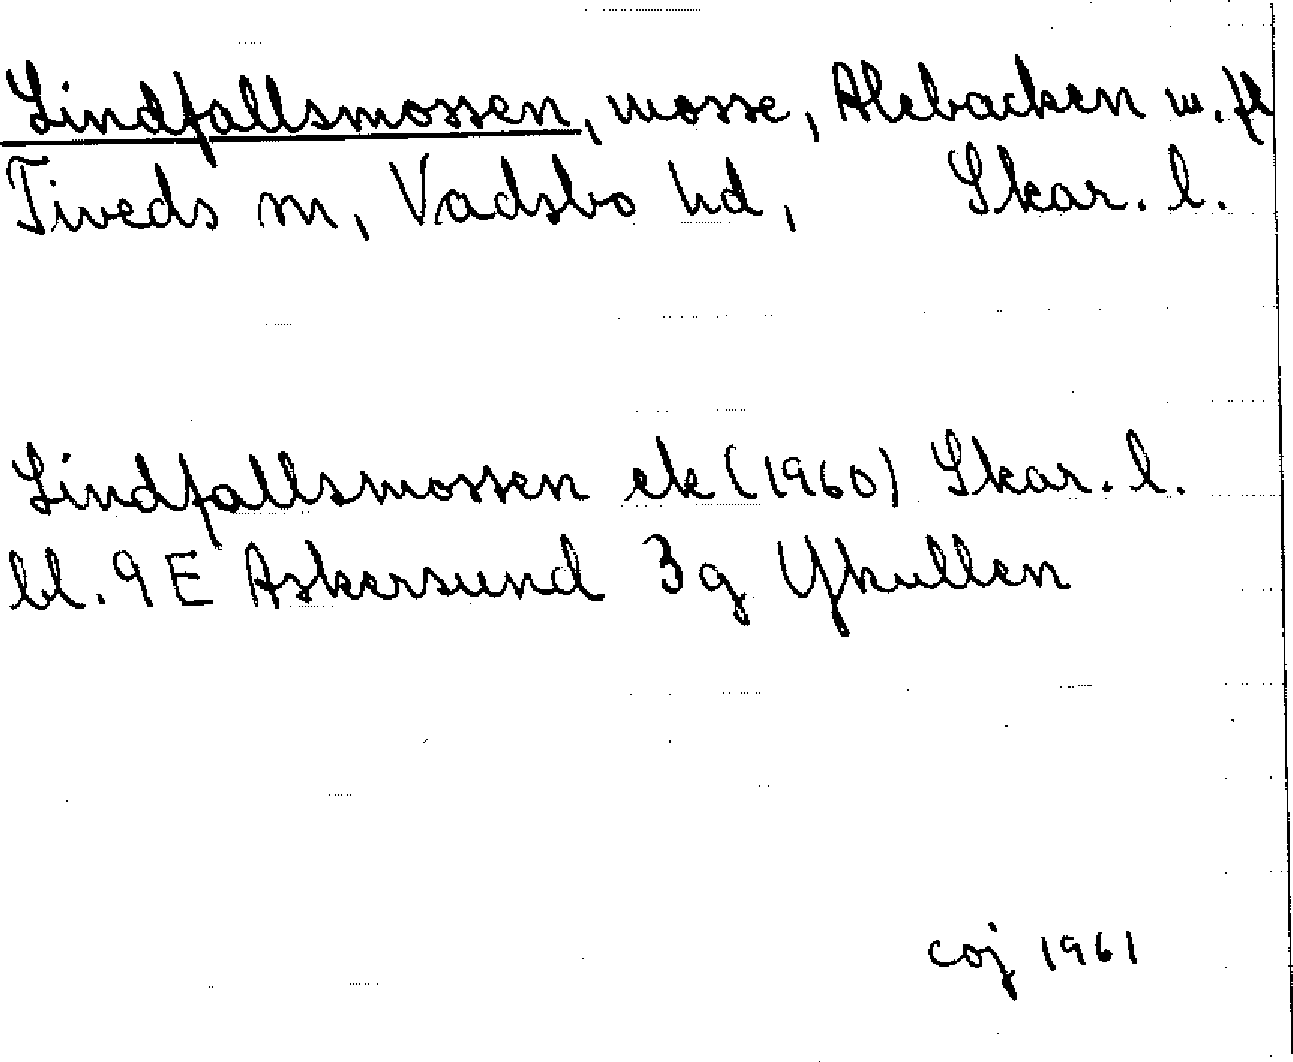 Lindfallsmossen, mosse, Alebacken m. fl
Tiveds sn, Vadsbo hd, Skar. l.
Lindfallsmossen ek (1960) Skar. l.
bl. 9E Askersund 3g Ykullen
coj 1961